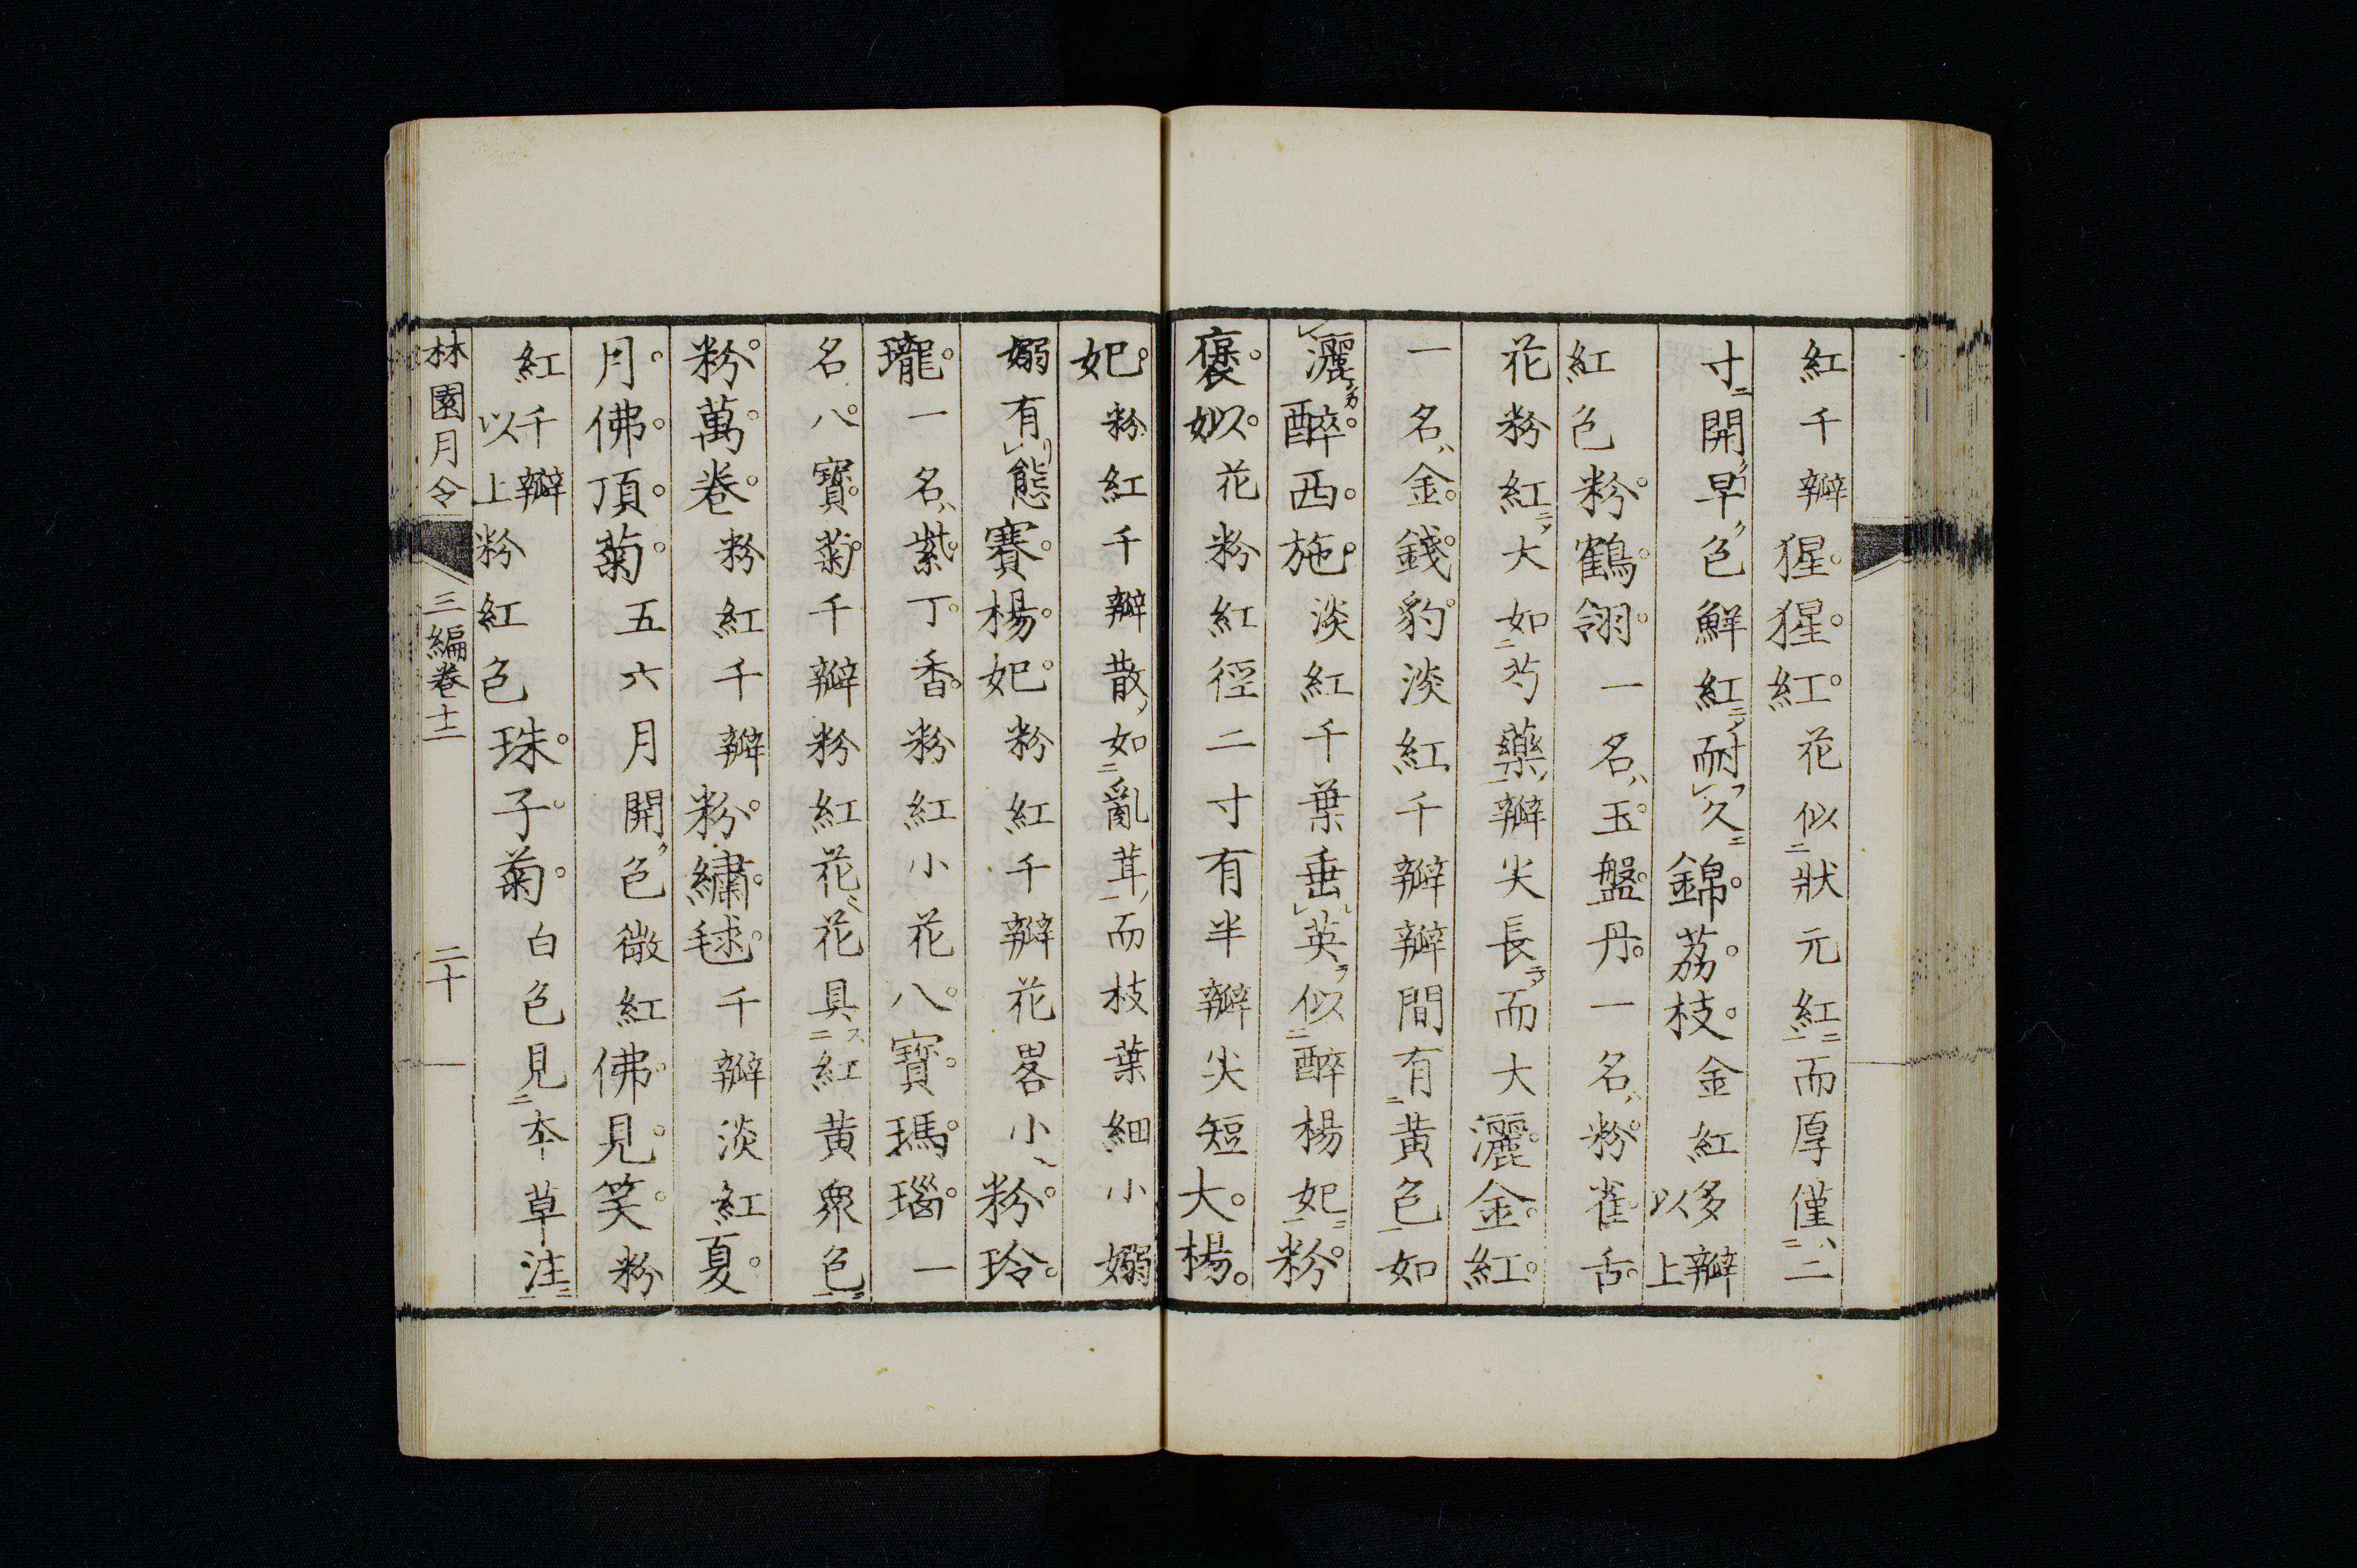 紅千瓣猩猩紅花似狀元紅而厚僅二
寸開早色鮮紅耐久錦荔枝金紅多瓣以上
紅色粉鶴翎一名玉盤丹一名粉雀舌
花粉紅大如芍藥瓣尖長而大灑金紅
一名金錢豹淡紅千瓣瓣間有黃色如
灑醉西施淡紅千葉垂英似醉楊妃粉
褒姒花粉紅徑二寸有半瓣尖短大楊
妃粉紅千瓣散如亂茸而枝葉細小嫋
嫋有態賽楊妃粉紅千瓣花畧小粉玲
瓏一名紫丁香粉紅小花八寶瑪瑙一
名八寶菊千瓣粉紅花花具紅黃衆色
粉萬卷粉紅千瓣粉繡毬千瓣淡紅夏
月佛頂菊五六月開色微紅佛見笑粉
紅千瓣以上粉紅色珠子菊白色見本草注
林園月令 三編卷十二 二十